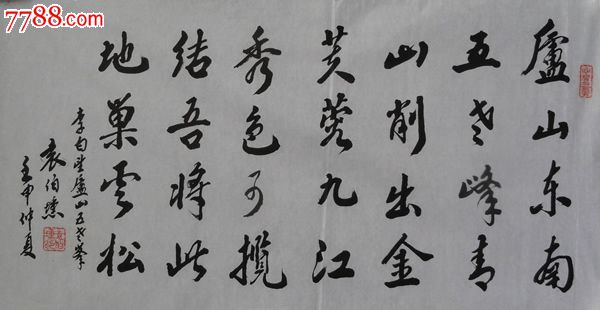 7788.com
廬山东南
五老峰青
山削出金
芙蓉九江
秀色可攬
結吾將此
地巢雲松
李白望廬山五老峯
袁伯
壬申仲夏